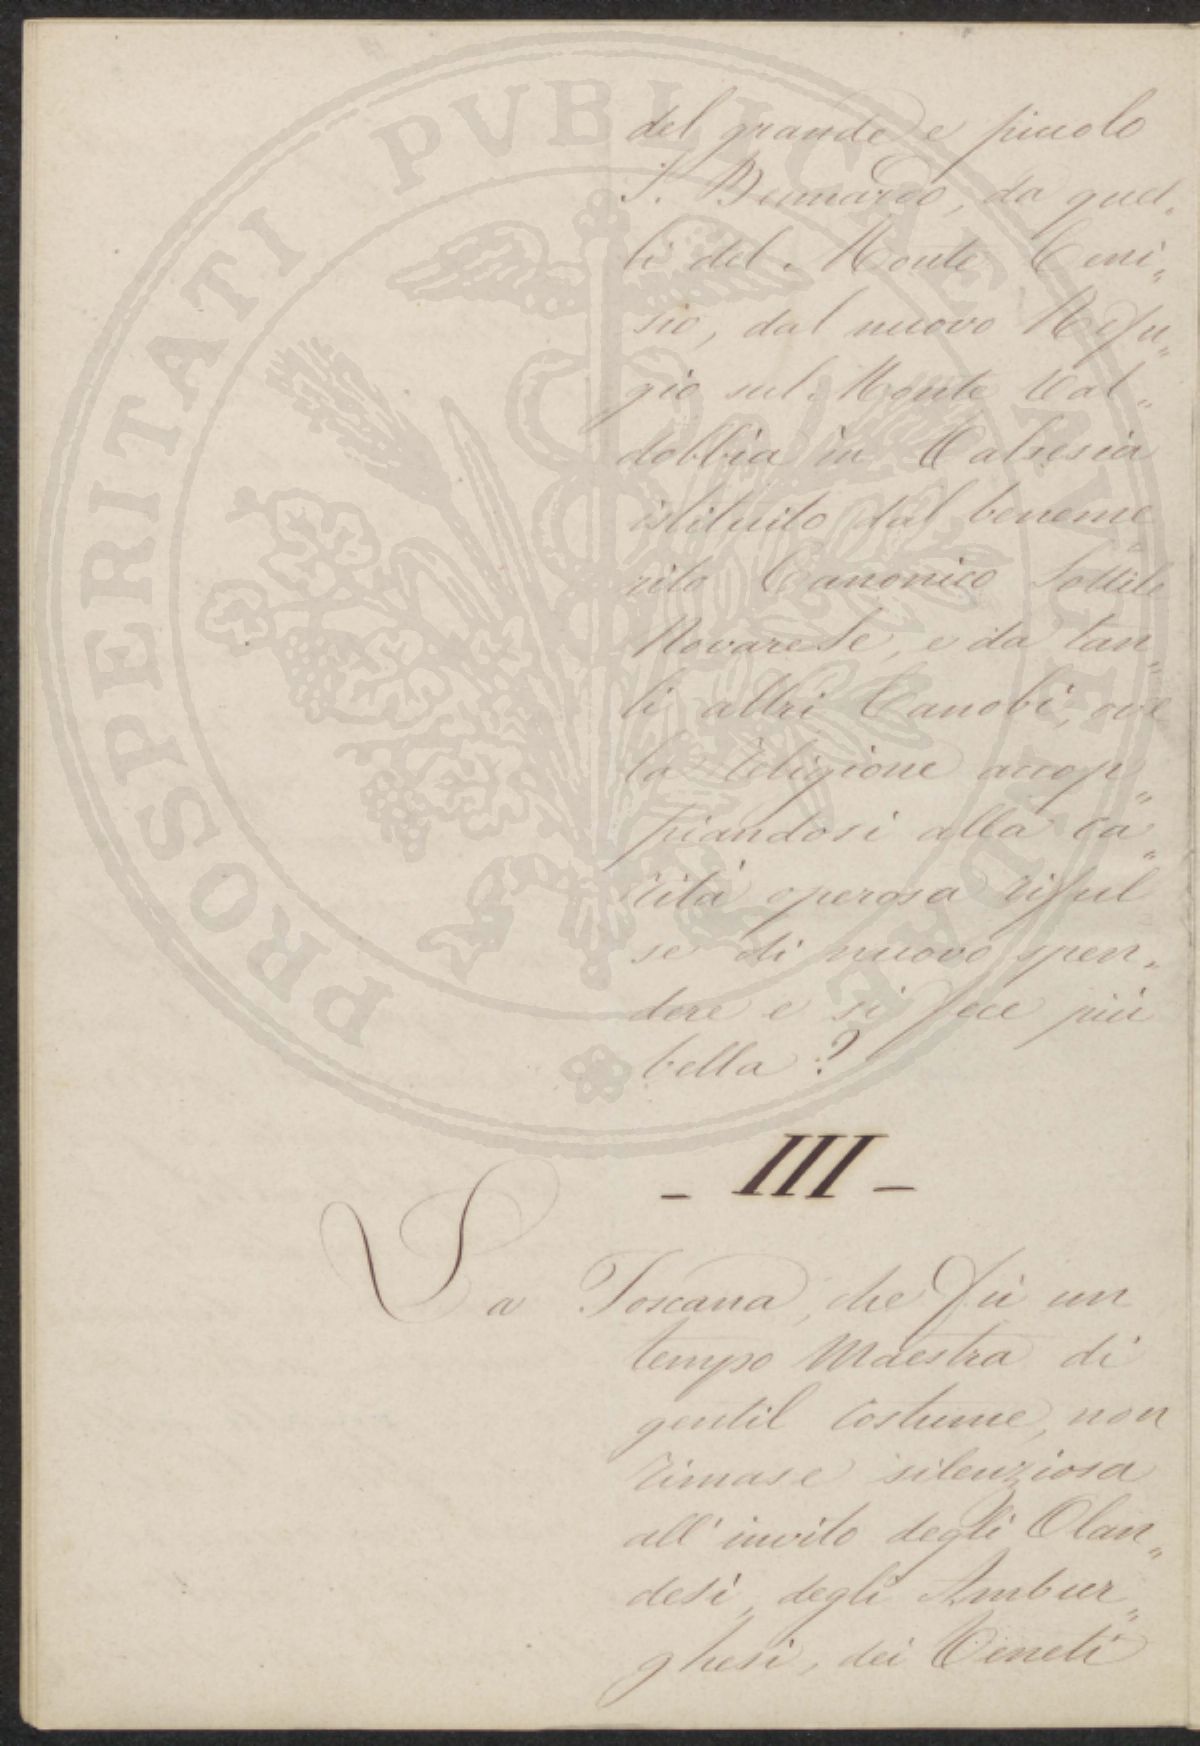 del grande e piccolo
S. Bernardo, da quel„
li del Monte Ceni„
sio, dal nuovo Rifu„
gio sul Monte Val„
dobbia in Valsesia
istituito dal beneme„
rito Canonico Sottile
Novarese, e da tan„
ti altri Cenobi, ove
la religione accop„
piandosi alla ca„
rità operosa riful
se di nuovo splen„
dere e si fece più
bella?
- III -
La Toscana, che fù un
tempo Maestra di
gentil costume, non
rimase silenziosa
all'invito degli Olan„
desi, degli Ambur„
ghesi, dei Veneti
PROSPERITATI PVBLICAE AVGENDAE